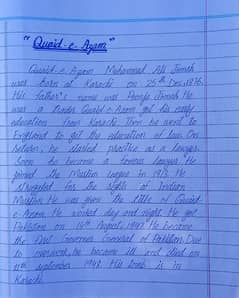 "Quaid-e-Azam"
Quaid-e-Azam Muhammad Ali Jinnah
was born at Karachi on 25th Dec, 1876.
His father's name was Poonja Jinnah He
was a trader Quaid-e-Azam got his early
education from Karachi Then he went to
England to get the education of law. On
return, he started practice as a lawyer.
Soon he became a famous lawyer He
joined the Muslim league in 1913. He
struggled for the rights of Indian
Muslim He was given the title of Quaid-
e-Azam. He worked day and night. He got
Pakistan on 14th August, 1947. He became
the first Governor General of Pakistan. Due
to overwork, he became ill and died on
11th september 1948. His tomb is in
Karachi.